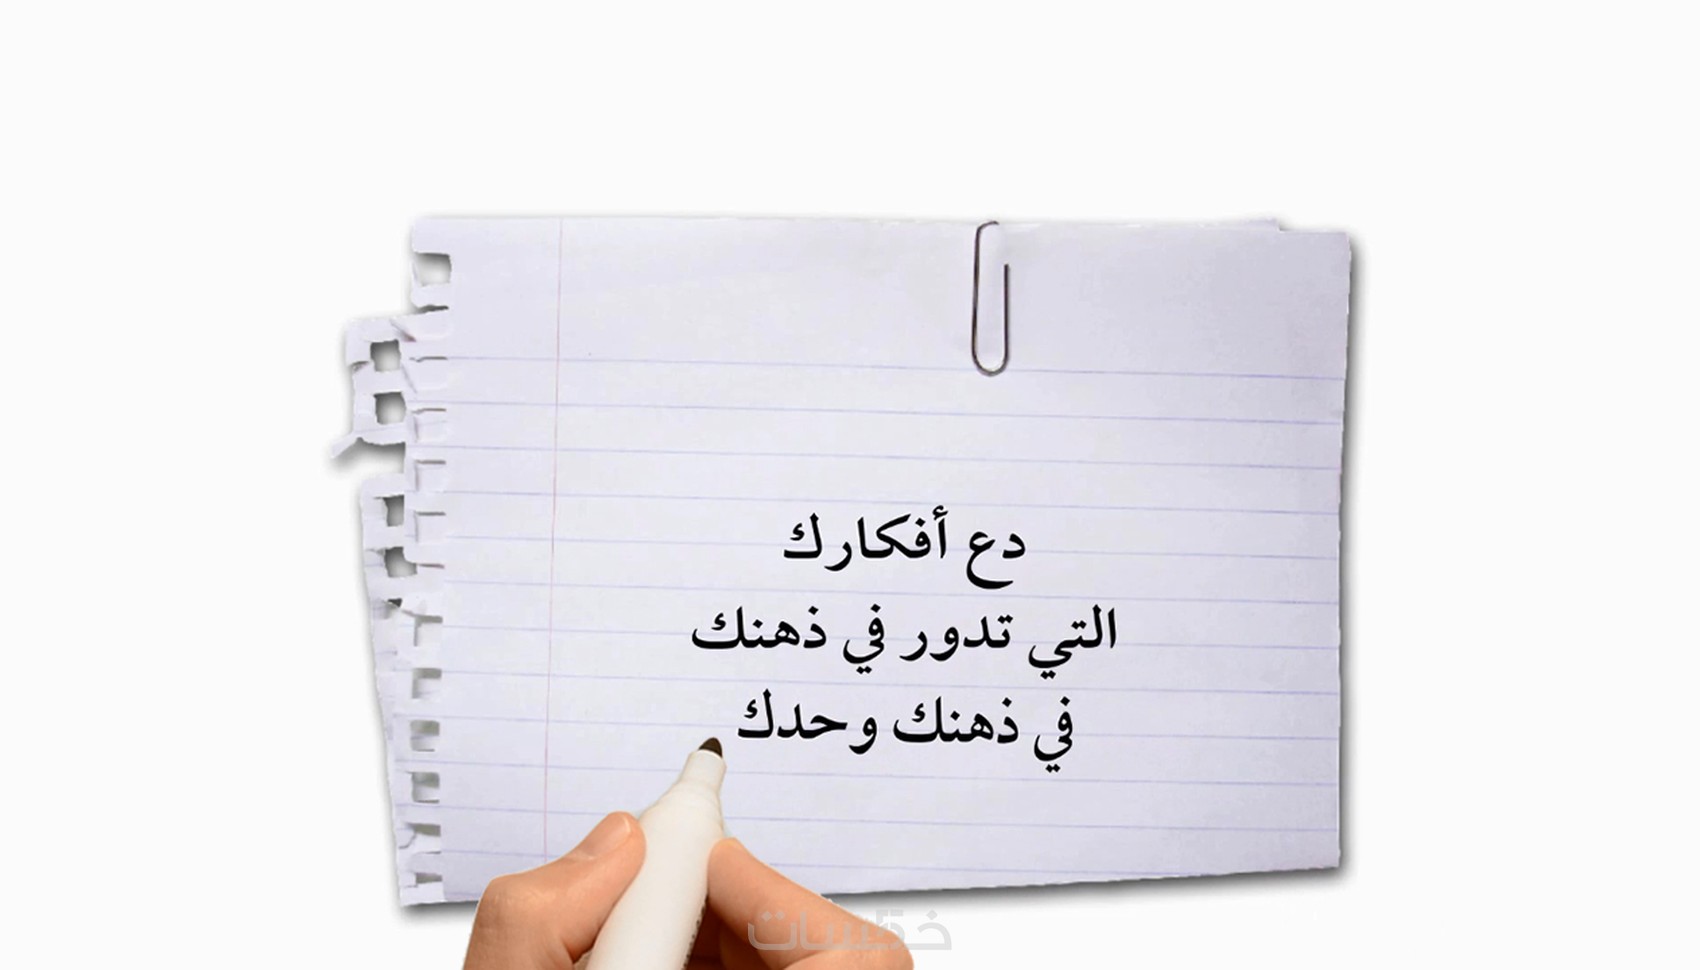 دع أفكارك
التي تدور في ذهنك
في ذهنك وحدك
خمسات